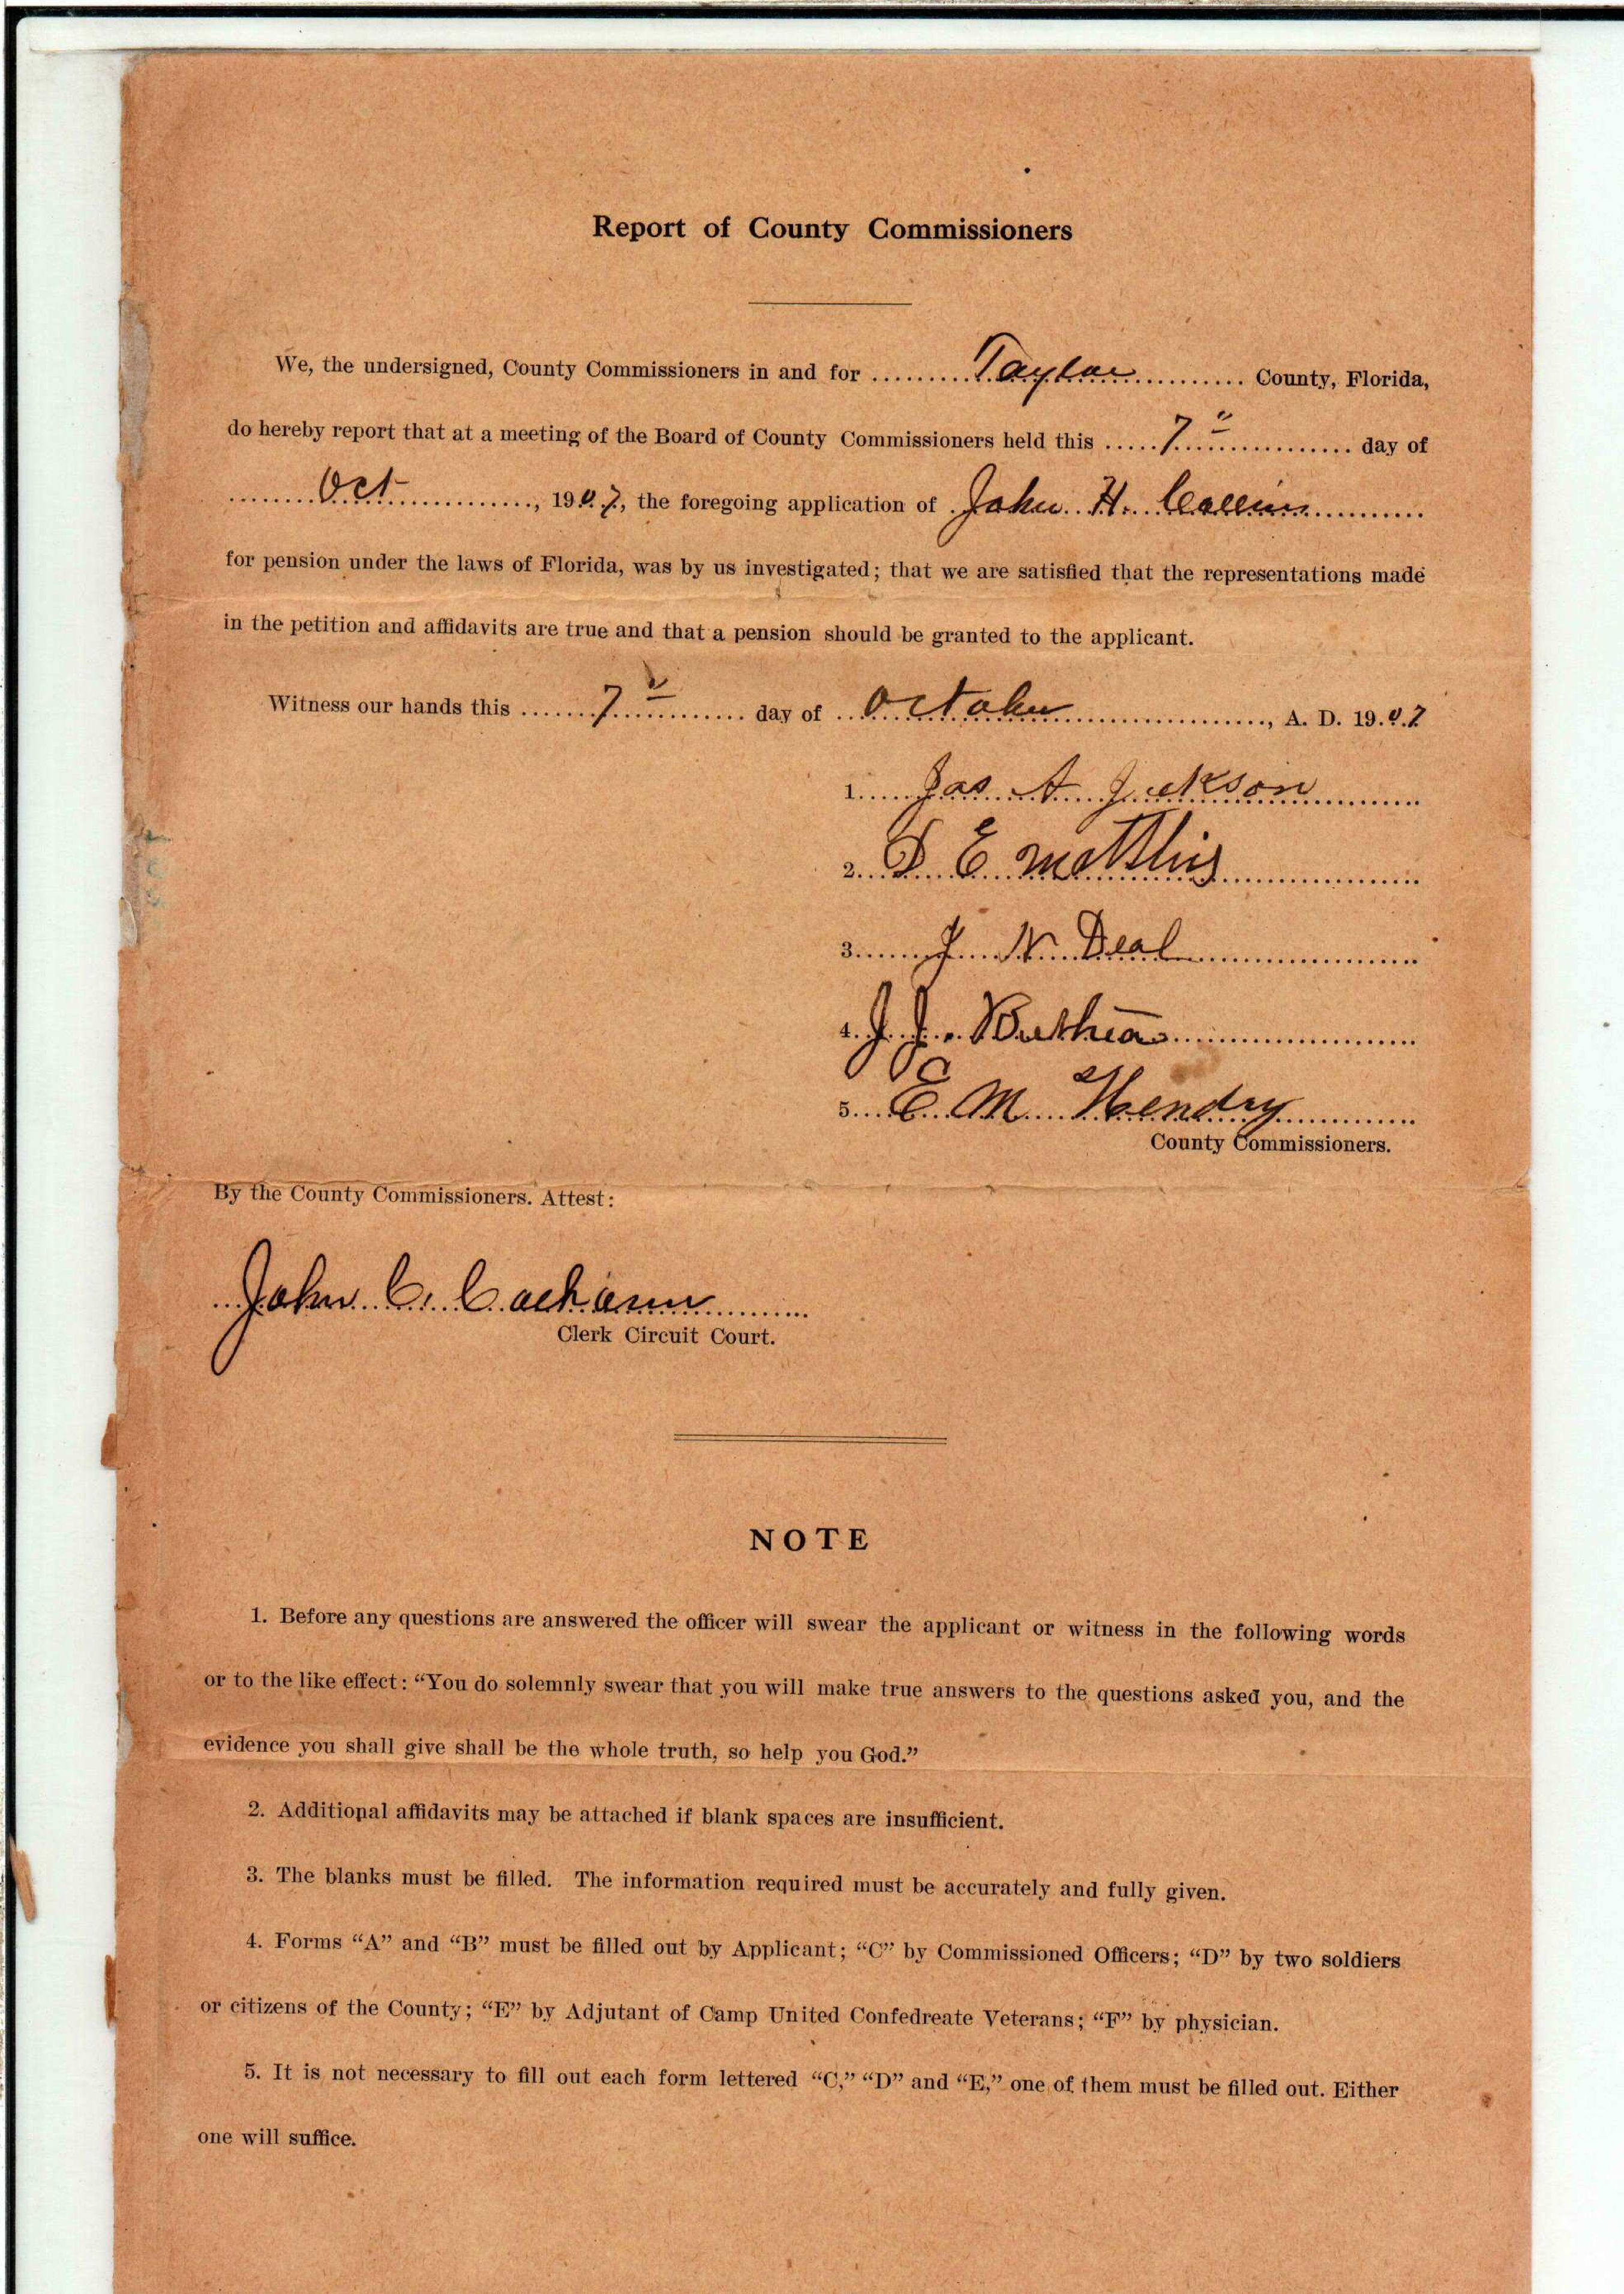 Report of County Commissioners
We, the undersigned, County Commissioners in and for Taylor County, Florida,
do hereby report that at a meeting of the Board of County Commissioners held this 7" day of
Oct, 1907, the foregoing application of John H. Collins
for pension under the laws of Florida, was by us investigated; that we are satisfied that the representations made
in the petition and affidavits are true and that a pension should be granted to the applicant.
Witness our hands this 7" day of October, A. D. 1907
1. Jas A Jackson
2. E
3. J. N. Deal
4. J. J.
5. E M Hendry
County Commissioners.
By the County Commissioners. Attest:
John C.
Clerk Circuit Court.
NOTE
1. Before any questions are answered the officer will swear the applicant or witness in the following words
or to the like effect: “You do solemnly swear that you will make true answers to the questions asked you, and the
evidence you shall give shall be the whole truth, so help you God.”
2. Additional affidavits may be attached if blank spaces are insufficient.
3. The blanks must be filled. The information required must be accurately and fully given.
4. Forms “A” and “B” must be filled out by Applicant; “C” by Commissioned Officers; “D” by two soldiers
or citizens of the County; “E” by Adjutant of Camp United Confedreate Veterans; “F” by physician.
5. It is not necessary to fill out each form lettered “C,” “D” and “E,” one of them must be filled out. Either
one will suffice.